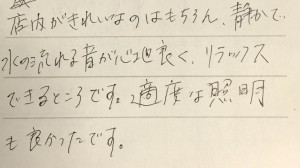 店内がきれいなのはもちろん、静かで、
水の流れる音が心地良く、リラックス
できるところです。適度な照明
も良かったです。